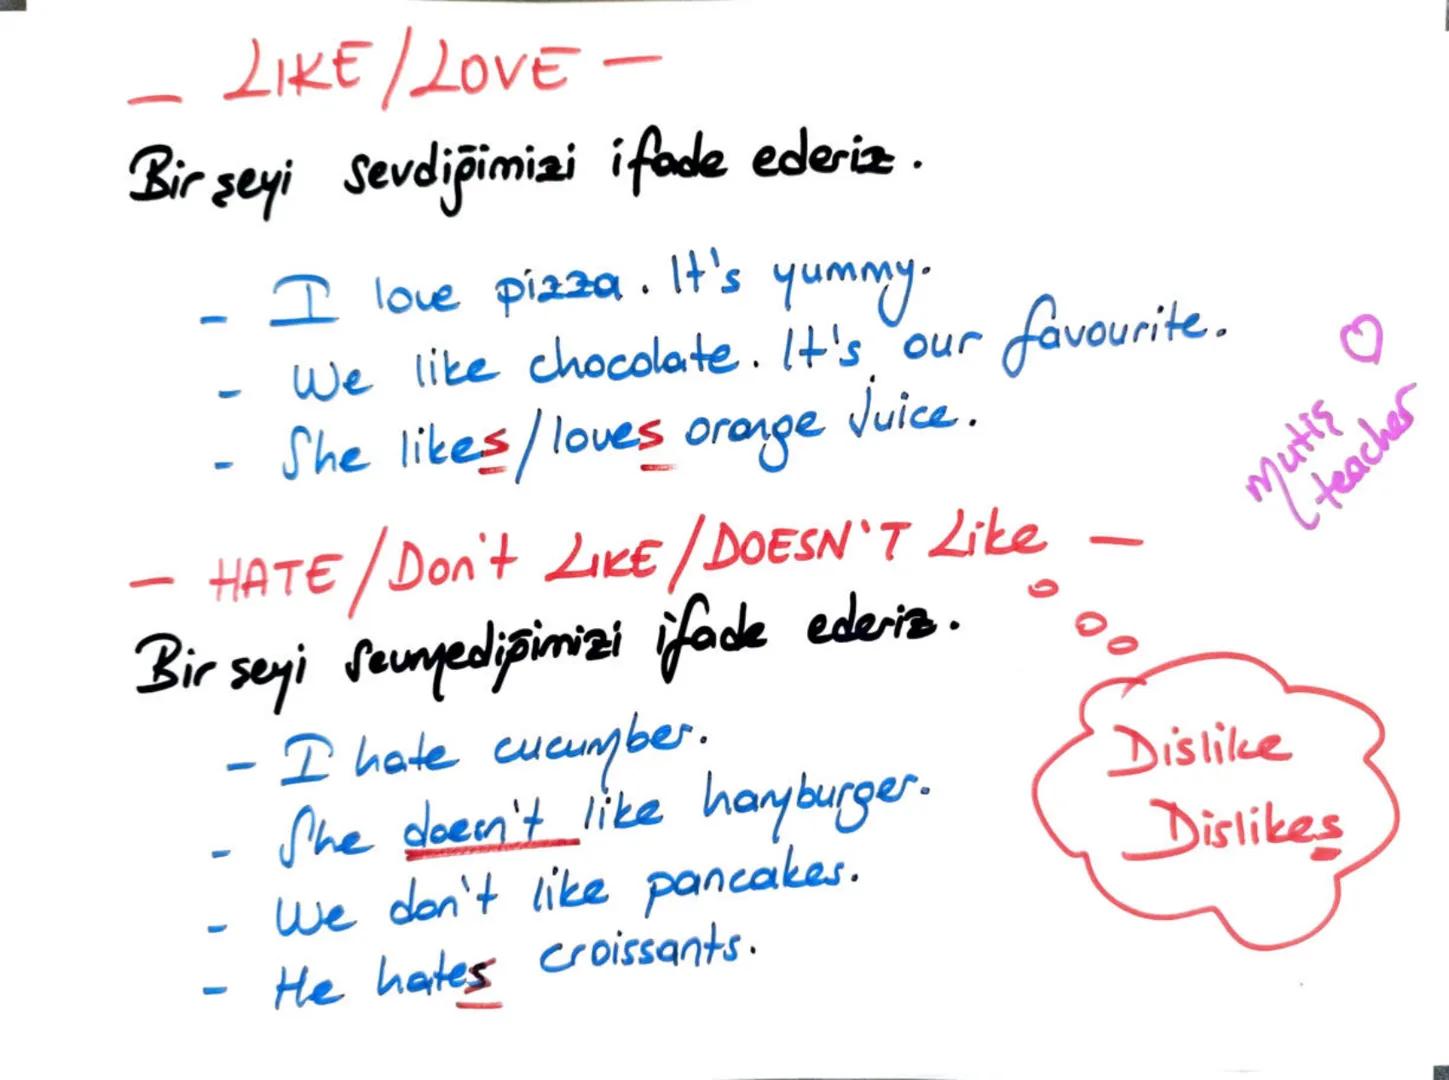 — LIKE/LOVE —
Bir şeyi sevdiğimizi ifade ederiz.
- I love pizza. It's yummy.
- We like chocolate. It's our favourite.
- She likes/loves orange juice.
mutiş
teacher
— HATE/Don't LIKE/DOESN'T Like —
Bir seyi sevmediğimizi ifade ederiz.
- I hate cucumber.
- She doesn't like hamburger.
- We don't like pancakes.
- He hates croissants.
Dislike
Dislikes